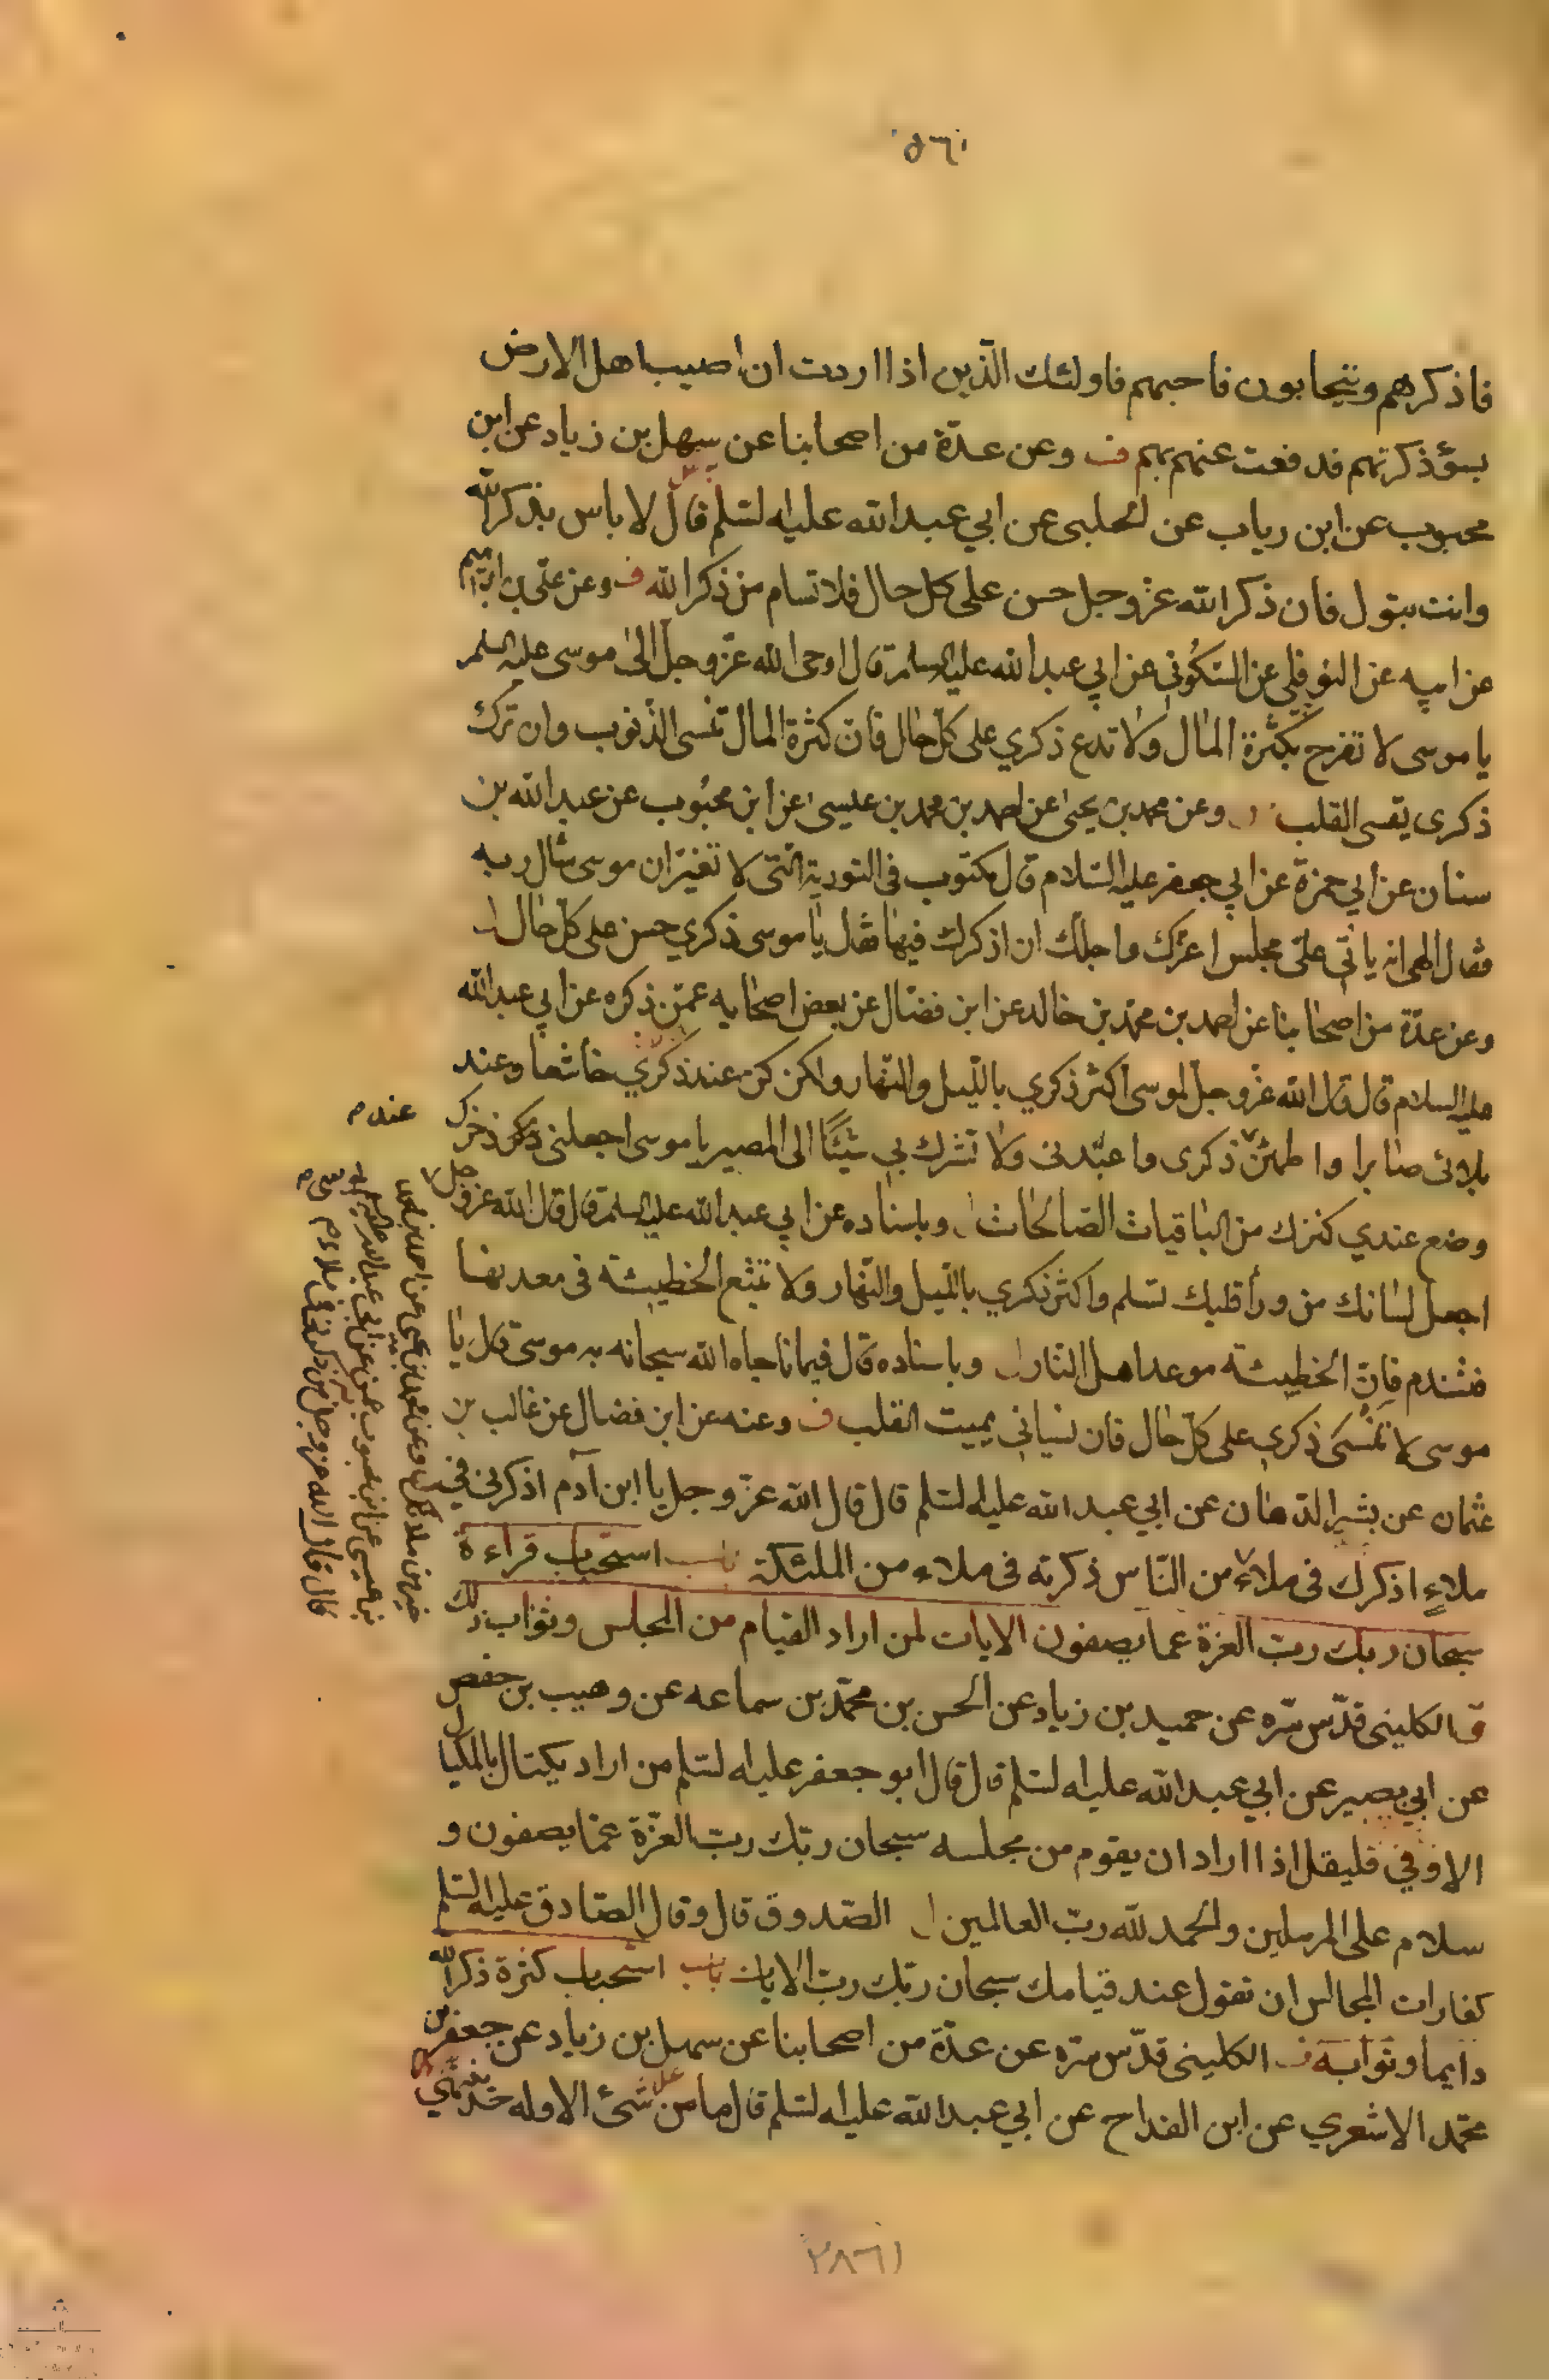 ٥٦١
فاذكرهم ويتحابون فاحبهم فاولئك الّذين اذا اردت ان اصيب اهل الارض
بسؤ ذكرتهم فدفعت عنهم بهم ف وعن عدّة من اصحابنا عن سهل بن زياد عن ابن
محبوب عن ابن رياب عن الحلبى عن ابي عبد الله عليه لسّلم قال لا باس بذكر الله
وانت تبول فان ذكر الله عز وجل حسن على كل حال فلا تسام من ذكر الله ف وعن علي بن ابرهيم
عن ابيه عن النوفلي عن السّكوني عن ابي عبد الله عليه السلم قال اوحى الله عزّ وجلّ الى موسى عليه السلم
يا موسى لا تفرح بكثرة المال ولا تدع ذكري على كلّ حال فانّ كثرة المال تنسى الذّنوب وان ترك
ذكرى يقسى القلب وعن محمد بن يحيى عن احمد بن محمد بن عيسى عن ابن محبوب عن عبد الله بن
سنان عن ابي حمزة عن ابي جعفر عليه السّلام قال مكتوب فى التورية الّتى لا تغيّر ان موسى سال ربه
فقال الهى انه ياتى علىّ مجلس اعزك واجلك ان اذكرك فيها فقال يا موسى ذكري حسن على كلّ حال
وعن عدّة من اصحابنا عن احمد بن محمّد بن خالد عن ابن فضّال عن بعض اصحابه عمّن ذكره عن ابي عبد الله
عليه السلام قال قال الله عزّ وجلّ لموسى اكثر ذكري باللّيل والنّهار وكن عند ذكري خاشعا وعند
بلائى صابرا واطمئنّ ذكرى واعبدنى ولا تشرك بي شيئًا الى المصير يا موسى اجعلنى ذخرك
عند م
وضع عندي كنزك من الباقيات الصّالحات وباسناده عن ابي عبد الله عليه السلم قال قال الله عز وجل
اجعل لسانك من ورأ قلبك تسلم واكثر ذكري باللّيل والنّهار ولا تتبع الخطيئة فى معدنها
فتندم فانّ الخطيئة موعد اهل النار وباسناده قال فيما ناجاه الله سبحانه به موسى قال يا
موسى لا تنسى ذكري على كلّ حال فان نسياني يميت القلب ف وعنه عن ابن فضال عن غالب بن
عثمان عن بشير الدّهان عن ابي عبد الله عليه لسّلم قال قال الله عزّ وجل يا ابن آدم اذكرنى في
ملاءٍ اذكرك فى ملاء من النّاس ذكرته فى ملاء من الملئكة باب استحباب قراءة
خير من ملائكم وعن محمد بن يحيى عن احمد بن محمد
بن عيسى عن ابن محبوب عمن ذكره عن ابي عبد الله
قال قال الله عز وجل من ذكرنى فى ملاء م
سبحان ربك ربّ العزة عما يصفون الايات لمن اراد القيام من المجلس وثواب ذلك
ق الكلينى قدّس سّره عن حميد بن زياد عن الحسن بن محمّد بن سماعه عن وهيب بن حفص
عن ابي بصير عن ابي عبد الله عليه لسّلم قال قال ابو جعفر عليه لسّلم من اراد يكتال بالمكيال
الاوفي فليقل اذا اراد ان يقوم من مجلسه سبحان ربّك ربّ العزّة عمّا يصفون و
سلام على المرسلين والحمد لله ربّ العالمين الصّدوق قال وقال الصّادق عليه السّلم
كفارات المجالس ان تقول عند قيامك سبحان ربّك ربّ الايات باب استحباب كثرة ذكر الله
دايما وثوابه ف الكلينى قدّس سّره عن عدّة من اصحابنا عن سهل بن زياد عن جعفر بن
محمّد الاشعري عن ابن القداح عن ابي عبد الله عليه لسّلم قال ما من شئ الا وله حد ينتهي
٢٨٦١